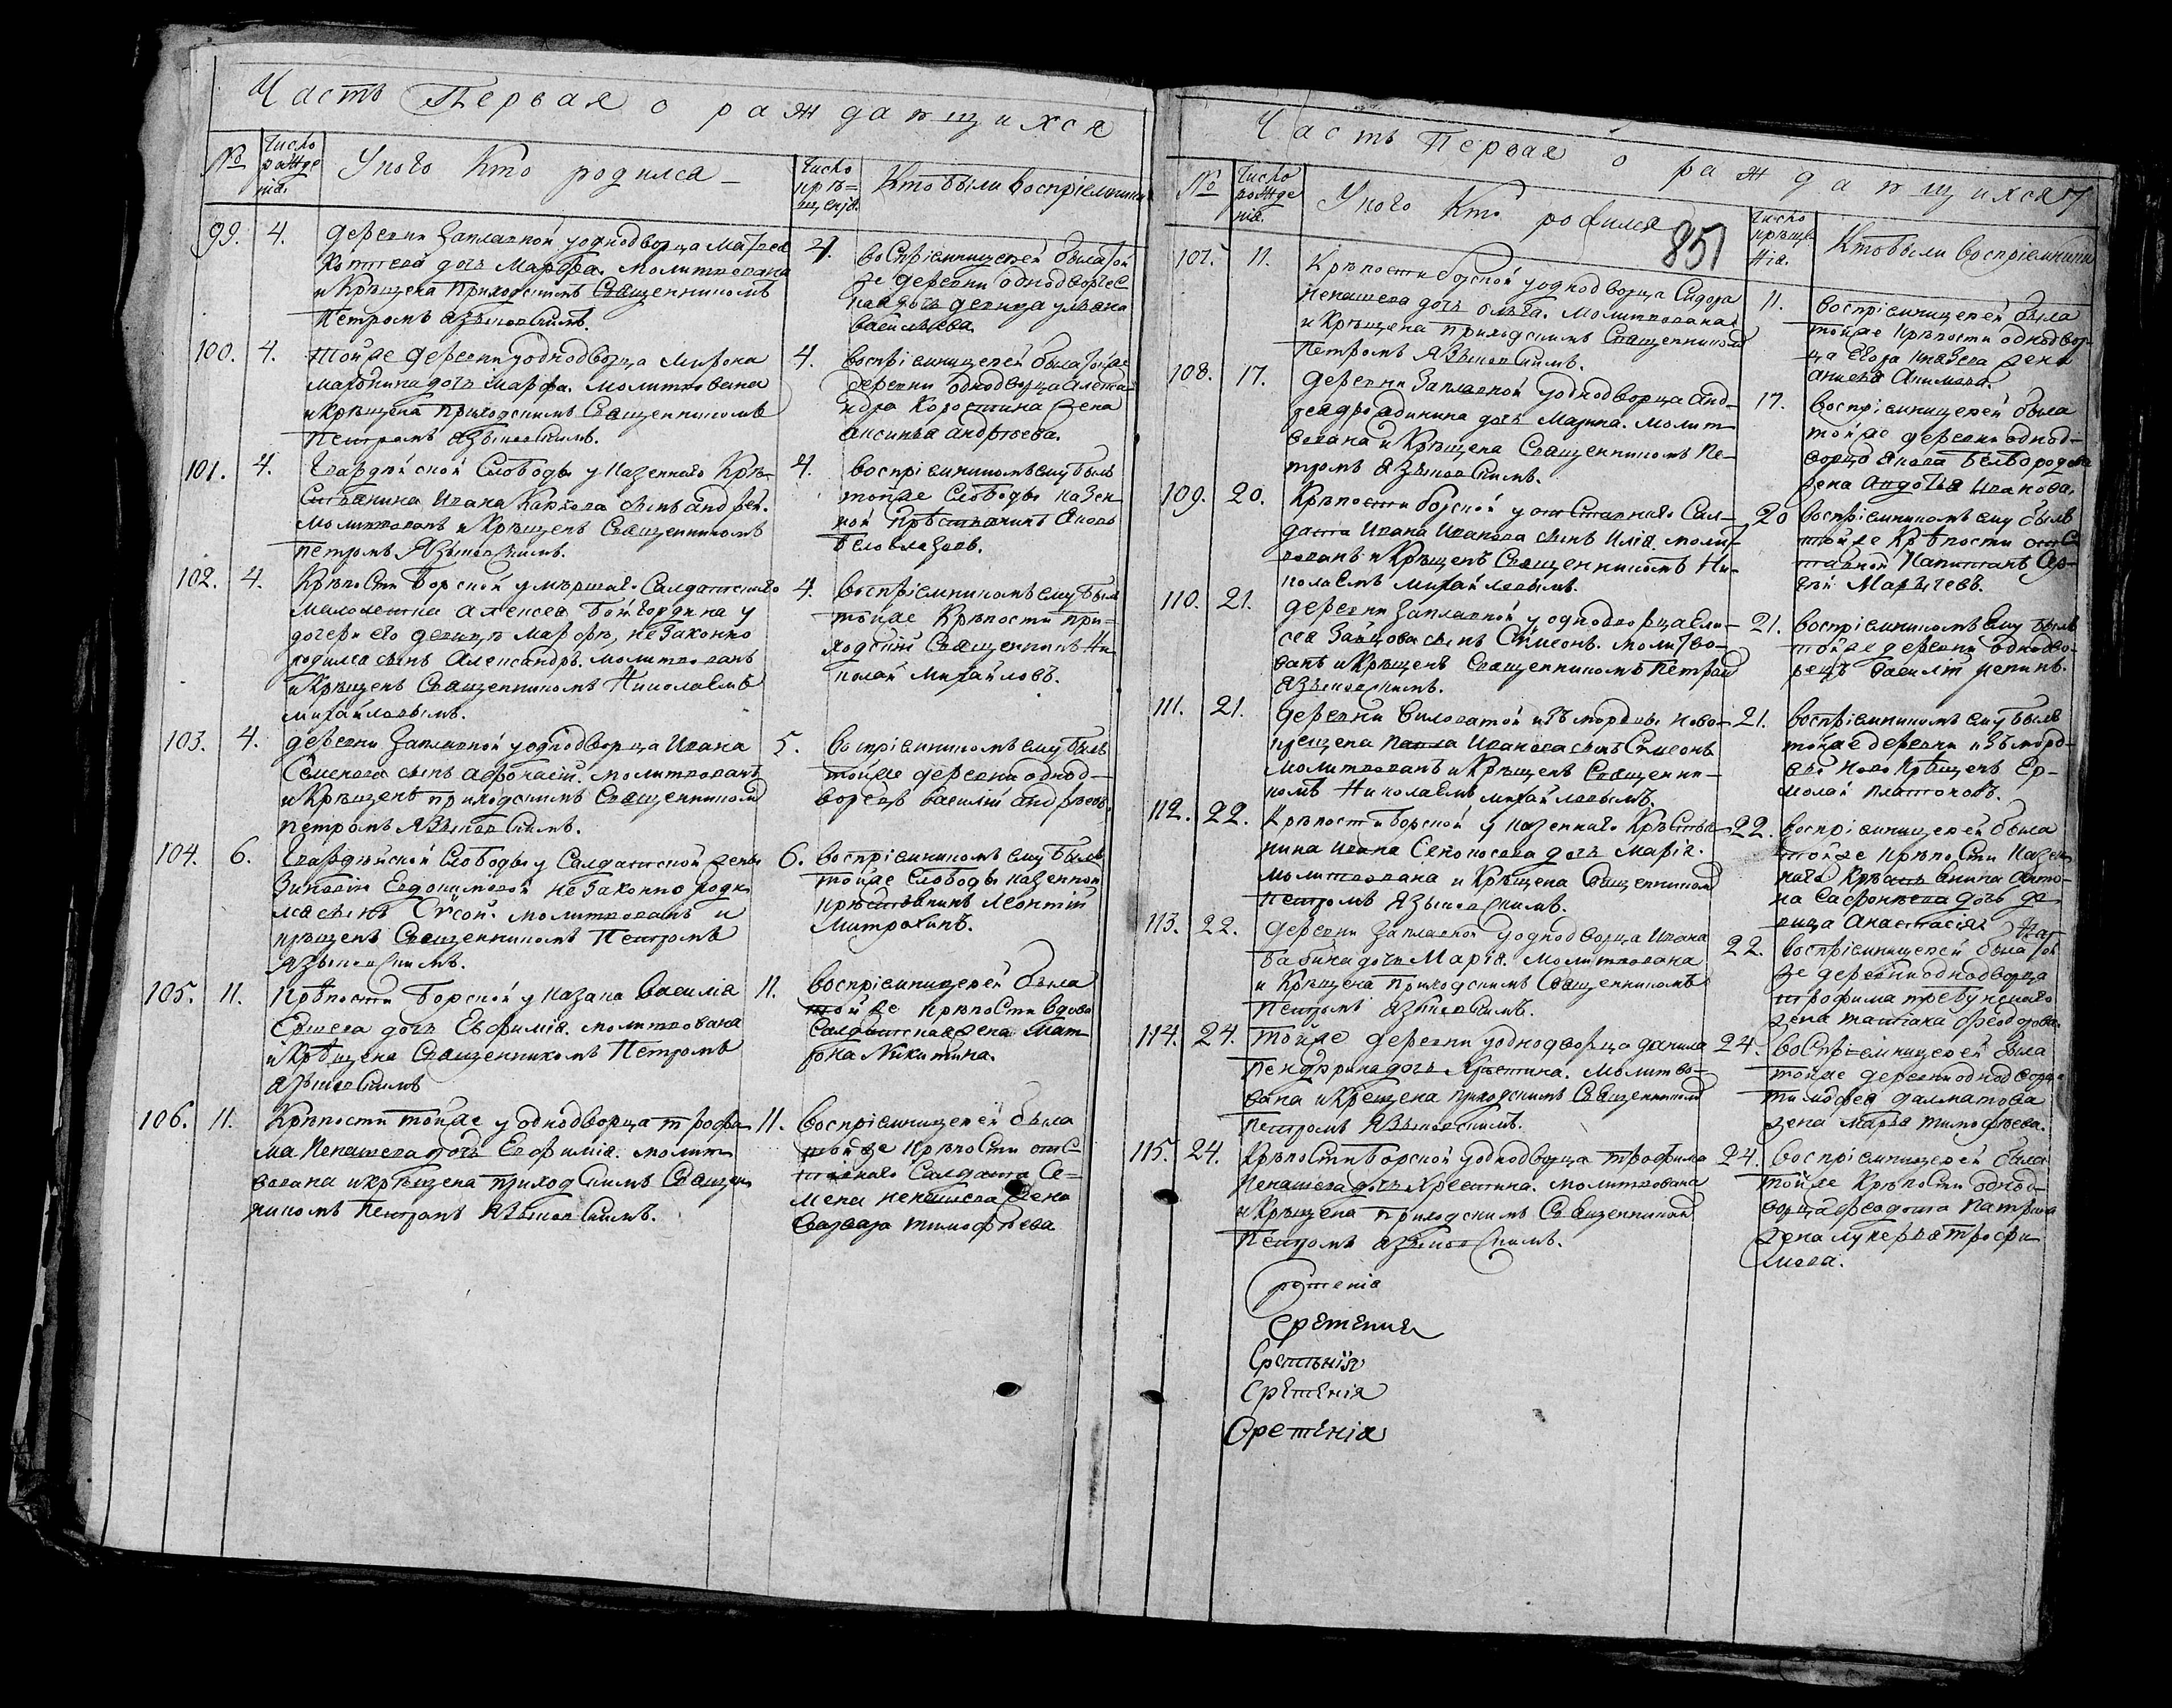 Часть Первая о раждающихся
№
Число рожде нія.
У кого Кто родился
Число крѣ= щенія.
Кто были Воспріемники
99. 4.
деревни Заплавной у однодворца Матвея
дочь Марфа. Молитвована
и Крѣщена Приходскимъ Священникомъ
Петромъ Языковскимъ.
4.
воспріемницей была той
же деревни однодворчес
кая дочь девица Ульяна
Васильева.
100. 4.
Тойже деревни у однодворца Мирона
дочь Марфа. Молитвована
и Крѣщена Приходскимъ Священникомъ
Петромъ Языковскимъ.
4.
Воспріемницей была тойже
деревни однодворца Алекса
ндра Коростина жена
Аксинья Андрѣева.
101. 4.
Гвардейской Слободы у Казеннаго Крѣ-
стьянина Ивана сынъ Андрей.
Молитвованъ и Крѣщенъ Священникомъ
Петромъ Языковскимъ.
4.
воспріемникомъ ему былъ
тойже Слободы Казен-
ной Крѣстьянинъ Яковъ
Бѣлоглазовъ.
102. 4.
Крѣпости Борской умершаго Салдатскаго
Малолетка Алексея у
дочери его девицѣ Марфѣ, не Законно
родился сынъ Александръ. Молитвованъ
и Крѣщенъ Священникомъ Николаемъ
Михайловымъ.
4.
воспріемникомъ ему былъ
тойже Крѣпости при=
ходскій Священникъ Ни
колай Михайловъ.
103. 4.
деревни Заплавной у однодворца Ивана
Семенова сынъ Афонасій. Молитвованъ
и Крѣщенъ приходскимъ Священникомъ
Петромъ Языковскимъ.
5.
Воспріемникомъ ему былъ
тойже деревни однод-
ворецъ Василій Андрѣевъ.
104. 6.
Гвардейской Слободы у Салдатской жены
Зиновіи Евдокимовой не Законно роди
лся сынъ Сысой. Молитвованъ и
крѣщенъ Священникомъ Петромъ
Языковскимъ.
6.
воспріемникомъ ему былъ
тойже Слободы казенной
крѣстьянинъ Леонтій
Митрохинъ.
105. 11.
Крѣпости Борской у Казака Василія
Ершева дочь Евфимія. Молитвована
и Крѣщена Священникомъ Петромъ
Языковскимъ
11.
воспріемницей была
тойже крѣпости вдова
Салдатская жена Мат
рона Никитина.
106. 11.
Крѣпости тойже у однодворца Трофи
ма Ненашева дочь Евфимія. Молит
вована и крѣщена приходскимъ Священ
никомъ Петромъ Языковскимъ.
11.
воспріемницей была
тойже крѣпости отс
тавнаго Салдата Се=
мена Ненашева жена
Варвара Тимофѣева
Часть Первая о раждающихся
7
№
Число рожде нія.
У кого Кто родился
851
Число крѣще нія.
Кто были воспріемники
107. 11.
Крѣпости Борской у однодворца Сидора
Ненашева дочь Ольга. Молитвована
и Крѣщена Приходскимъ Священникомъ
Петромъ Языковскимъ.
11.
воспріемницей была
тойже Крѣпости однодвор
ца Егора Князева жена
Анисья Акимова.
108. 17.
деревни Заплавной у однодворца Анд-
рея дочь Марина. Молит
вована и Крѣщена Священникомъ Пе-
тромъ Языковскимъ.
17.
воспріемницей была
тойже деревни однод-
ворца Якова Бѣлгородова
жена Авдотья Иванова.
109. 20.
Крѣпости Борской у отставнаго Сал-
дата Ивана Иванова сынъ Илія. Моли-
тованъ и Крѣщенъ Священникомъ Ни-
колаемъ Михайловымъ.
20
воспріемникомъ ему былъ
тойже Крѣпости отс
тавной Капитанъ Сер-
гѣй Марычевъ.
110. 21.
деревни Заплавной у однодворца Ели-
сея Зайцова сынъ Симеонъ. Молитво-
ванъ и Крѣщенъ Священникомъ Петромъ
Языковскимъ.
21.
воспріемникомъ Ему былъ
тойже деревни однодво-
рецъ Василій Репинъ.
111. 21.
деревни Виловатой изъ мордвы ново-
крещена Павла Иванова сынъ Симеонъ
Молитвованъ и Крѣщенъ Священни-
комъ Николаемъ Михайловымъ.
21.
воспріемникомъ ему былъ
тойже деревни изъ морд-
вы Ново Крѣщенъ Ер-
молай Платоновъ.
112. 22.
Крѣпости Борской у казеннаго Крѣстья
нина Ивана дочь Марія.
Молитвована и Крѣщена Священникомъ
Петромъ Языковскимъ.
22.
воспріемницей была
тойже крѣпости казен
наго Крѣстьянина Анто-
на Сафонѣева дочь де
вица Анастасія.
113. 22.
деревни Заплавной у однодворца Ивана
Бабина дочь Марія. Молитвована
и Крѣщена Приходскимъ Священникомъ
Петромъ Языковскимъ.
22.
воспріемницей была той
же деревни однодворца
Трофима Требунскаго
жена Татіана Феодорова.
114. 24.
тойже деревни у однодворца Данила
дочь Крестина. Молитво-
вана и Крещена приходскимъ Священникомъ
Петромъ Языковскимъ.
24.
воспріемницей была
тойже деревни однодворца
Тимофея Далматова
жена Марья Тимофѣева.
115. 24.
Крѣпости Борской у однодворца Трофима
Ненашева дочь Хрестина. Молитвована
и Крѣщена Приходскимъ Священникомъ
Петромъ Языковскимъ.
24.
воспріемницей была
тойже Крѣпости однод-
ворца Феодота
жена Лукерья Трофи
мова.
Сретения
Сретенія
Сретенія